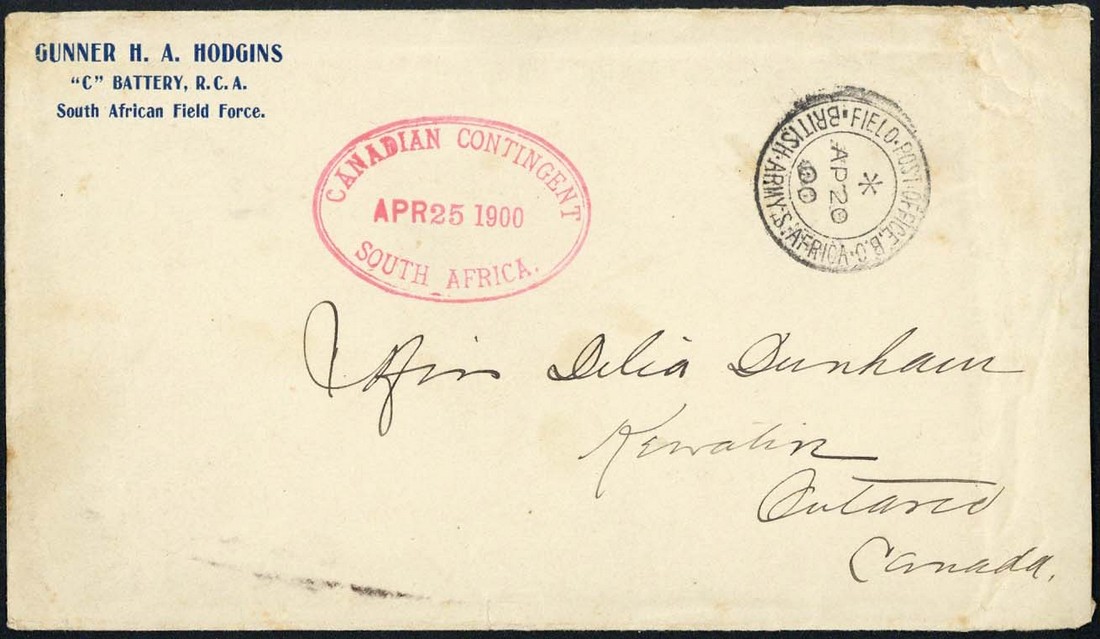 GUNNER H. A. HODGINS
"C" BATTERY, R.C.A.
South African Field Force.
CANADIAN CONTINGENT
APR 25 1900
SOUTH AFRICA.
FIELD·POST·OFFICE.B.O.
BRITISH·ARMY·S.AFRICA
*
AP 20
00
Miss Delia Dunham
Kewatin
Ontario
Canada.